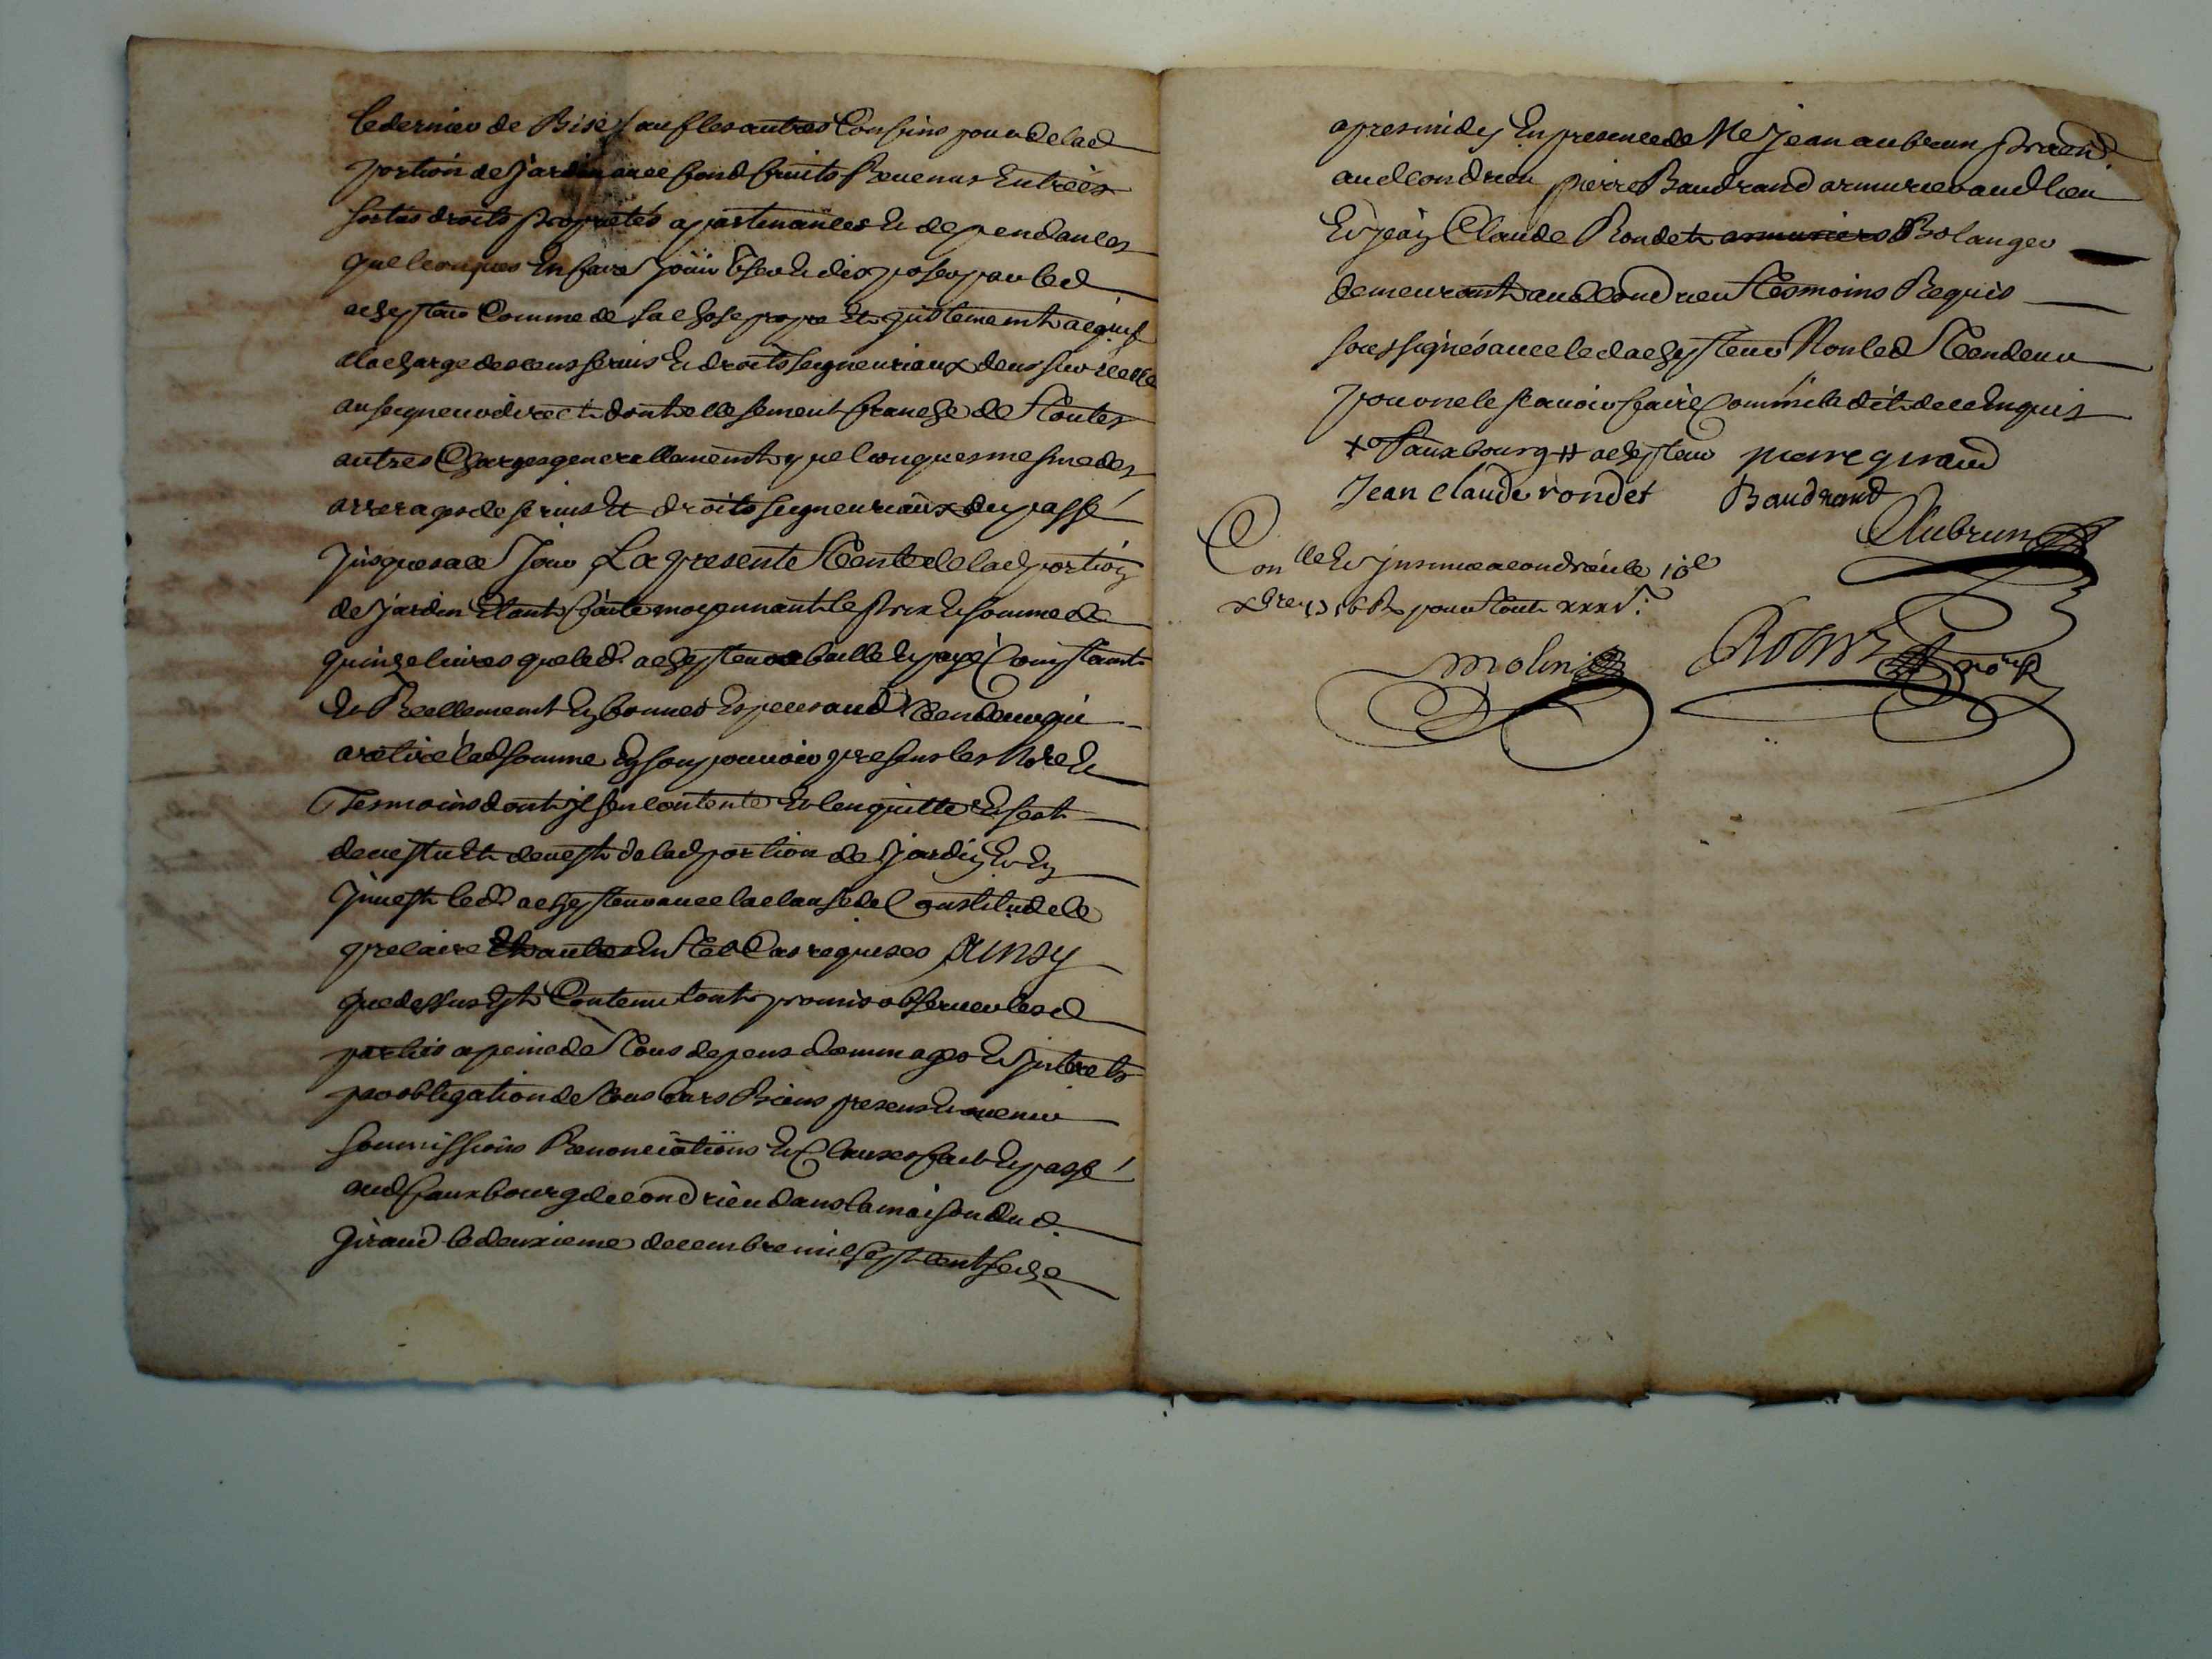 ledernier de Bise sauf les autres Confins pour de lad
portion de Jardin avec fond fruits Revenus Entrées
sorties droits proprietés apartenances Et dependances
quelconques En faire Jouir User Et disposer par led
achepteur Comme de sa chose propre Et justement acquise
a la charge des cens servis Et droits seigneuriaux deus sur icelle
au seigneur direct dont elle se ment franche de toutes
autres Charges generallement quelconques mesme des
arrerages de servis Et droits seigneuriaux du passé
Jusques a ce Jour La presente Vente de lad portion
de Jardin Etant faite moyennant le prix Et somme de
quinze livres que led. achepteur a baillé Et payé Constant
Et Reellement En bonnes Especes aud Vendeur qui
a retiré lad somme En son pouvoir presens les Nore Et
Tesmoins dont il s'en contente Et l'en quitte Et s'est
devestu Et devest de lad portion de Jardin Et En
Jnvest led. achepteur avec la clause de Constitut de
precaire Et autres En tel Cas requises Ainsy
que dessus Est Contenu l'ont promis observer lesd
parties a peine de tous depens dommages Et Jnterets
par obligation de tous leurs Biens presens Et avenir
soumissions Renonciations Et Clauses fait Et passé
aud fauxbourg de Condrieu dans la maison dud
Giraud le deuxieme decembre mil sept cent seize
apres midy En presence de Me Jean aubrun praticn
aud Condrieu pierre Baudrand armurier aud lieu
Et Jean Claude Rondet armuriers Bolanger
demeurant aud Condrieu tesmoins Requis
soussignés avec led achepteur Non led Vendeur
pour ne le scavoir faire Comm'il a dit de ce Enquis
+ fauxbourg # achepteur pierre giraud
Jean claude rondet Baudrand
Aubrun
Conllé Et Jnsinué a condrieu le 10e
xbre 1716 R pour tout xxxs.
Molin
nore R